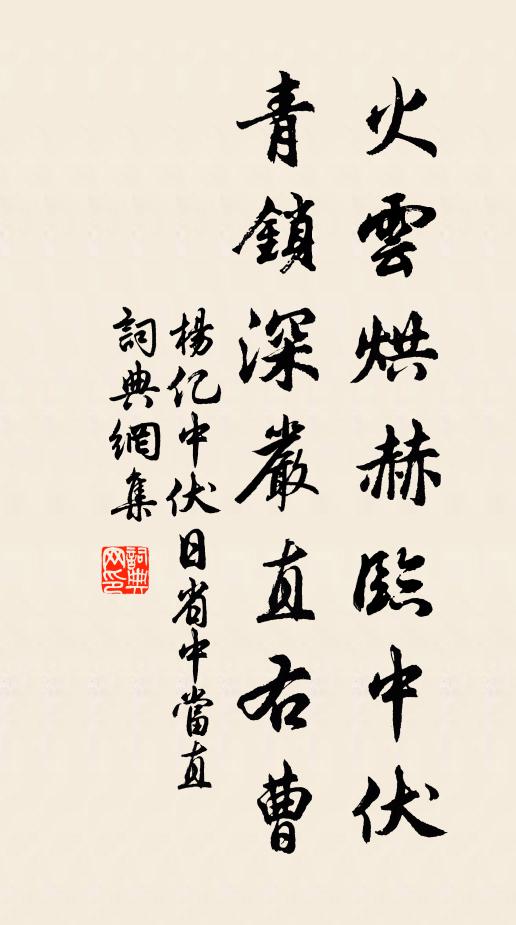 火雲烘赫臨中伏
青鎖深嚴直右曹
楊億中伏日省中當直
詞典網集
詞典網印